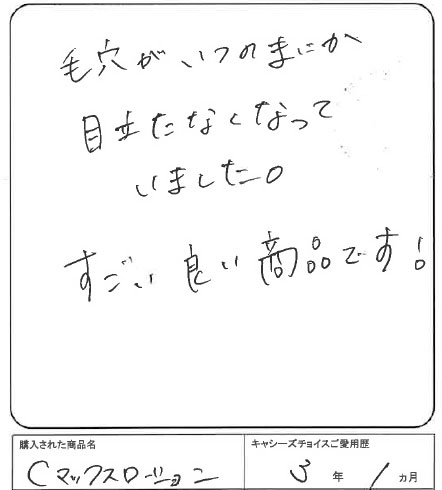 毛穴がいつのまにか
目立たなくなって
いました。
すごい良い商品です!
購入された商品名
Cマックスローション
キャシーズチョイスご愛用歴
3年1ヵ月